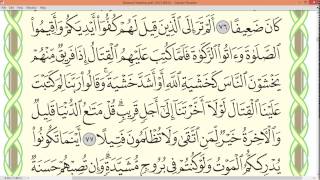 كَانَ ضَعِيفًا ٧٦ أَلَمْ تَرَ إِلَى ٱلَّذِينَ قِيلَ لَهُمْ كُفُّوٓا۟ أَيْدِيَكُمْ وَأَقِيمُوا۟
ٱلصَّلَوٰةَ وَءَاتُوا۟ ٱلزَّكَوٰةَ فَلَمَّا كُتِبَ عَلَيْهِمُ ٱلْقِتَالُ إِذَا فَرِيقٌ مِّنْهُمْ
يَخْشَوْنَ ٱلنَّاسَ كَخَشْيَةِ ٱللَّهِ أَوْ أَشَدَّ خَشْيَةً ۚ وَقَالُوا۟ رَبَّنَا لِمَ كَتَبْتَ
عَلَيْنَا ٱلْقِتَالَ لَوْلَآ أَخَّرْتَنَآ إِلَىٰٓ أَجَلٍ قَرِيبٍ ۗ قُلْ مَتَٰعُ ٱلدُّنْيَا قَلِيلٌ
وَٱلْءَاخِرَةُ خَيْرٌ لِّمَنِ ٱتَّقَىٰ وَلَا تُظْلَمُونَ فَتِيلًا ٧٧ أَيْنَمَا تَكُونُوا۟
يُدْرِككُّمُ ٱلْمَوْتُ وَلَوْ كُنتُمْ فِى بُرُوجٍ مُّشَيَّدَةٍ ۗ وَإِن تُصِبْهُمْ حَسَنَةٌ